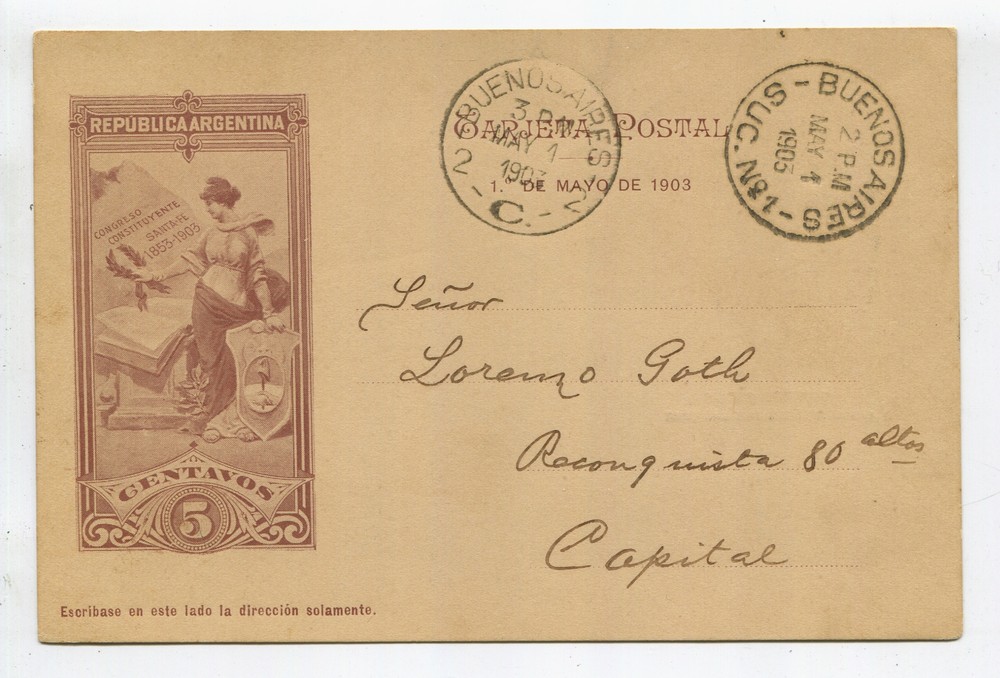 REPÚBLICA ARGENTINA
CONGRESO
CONSTITUYENTE
SANTA-FE
1853-1903
CENTAVOS
5
Escríbase en este lado la dirección solamente.
TARJETA POSTAL
1.º DE MAYO DE 1903
BUENOS AIRES
3 P.M
MAY 1
1903
2 - C. - 2
BUENOS AIRES - SUC. N.
2 P.M
MAY 1
1903
Señor
Lorenzo Goth
Reconquista 80 altos
Capital